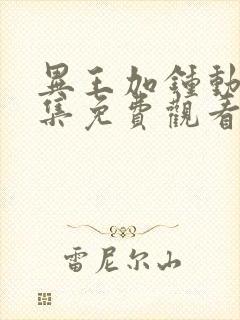 異王加鍾動
集免費觀看
雷尼尔山